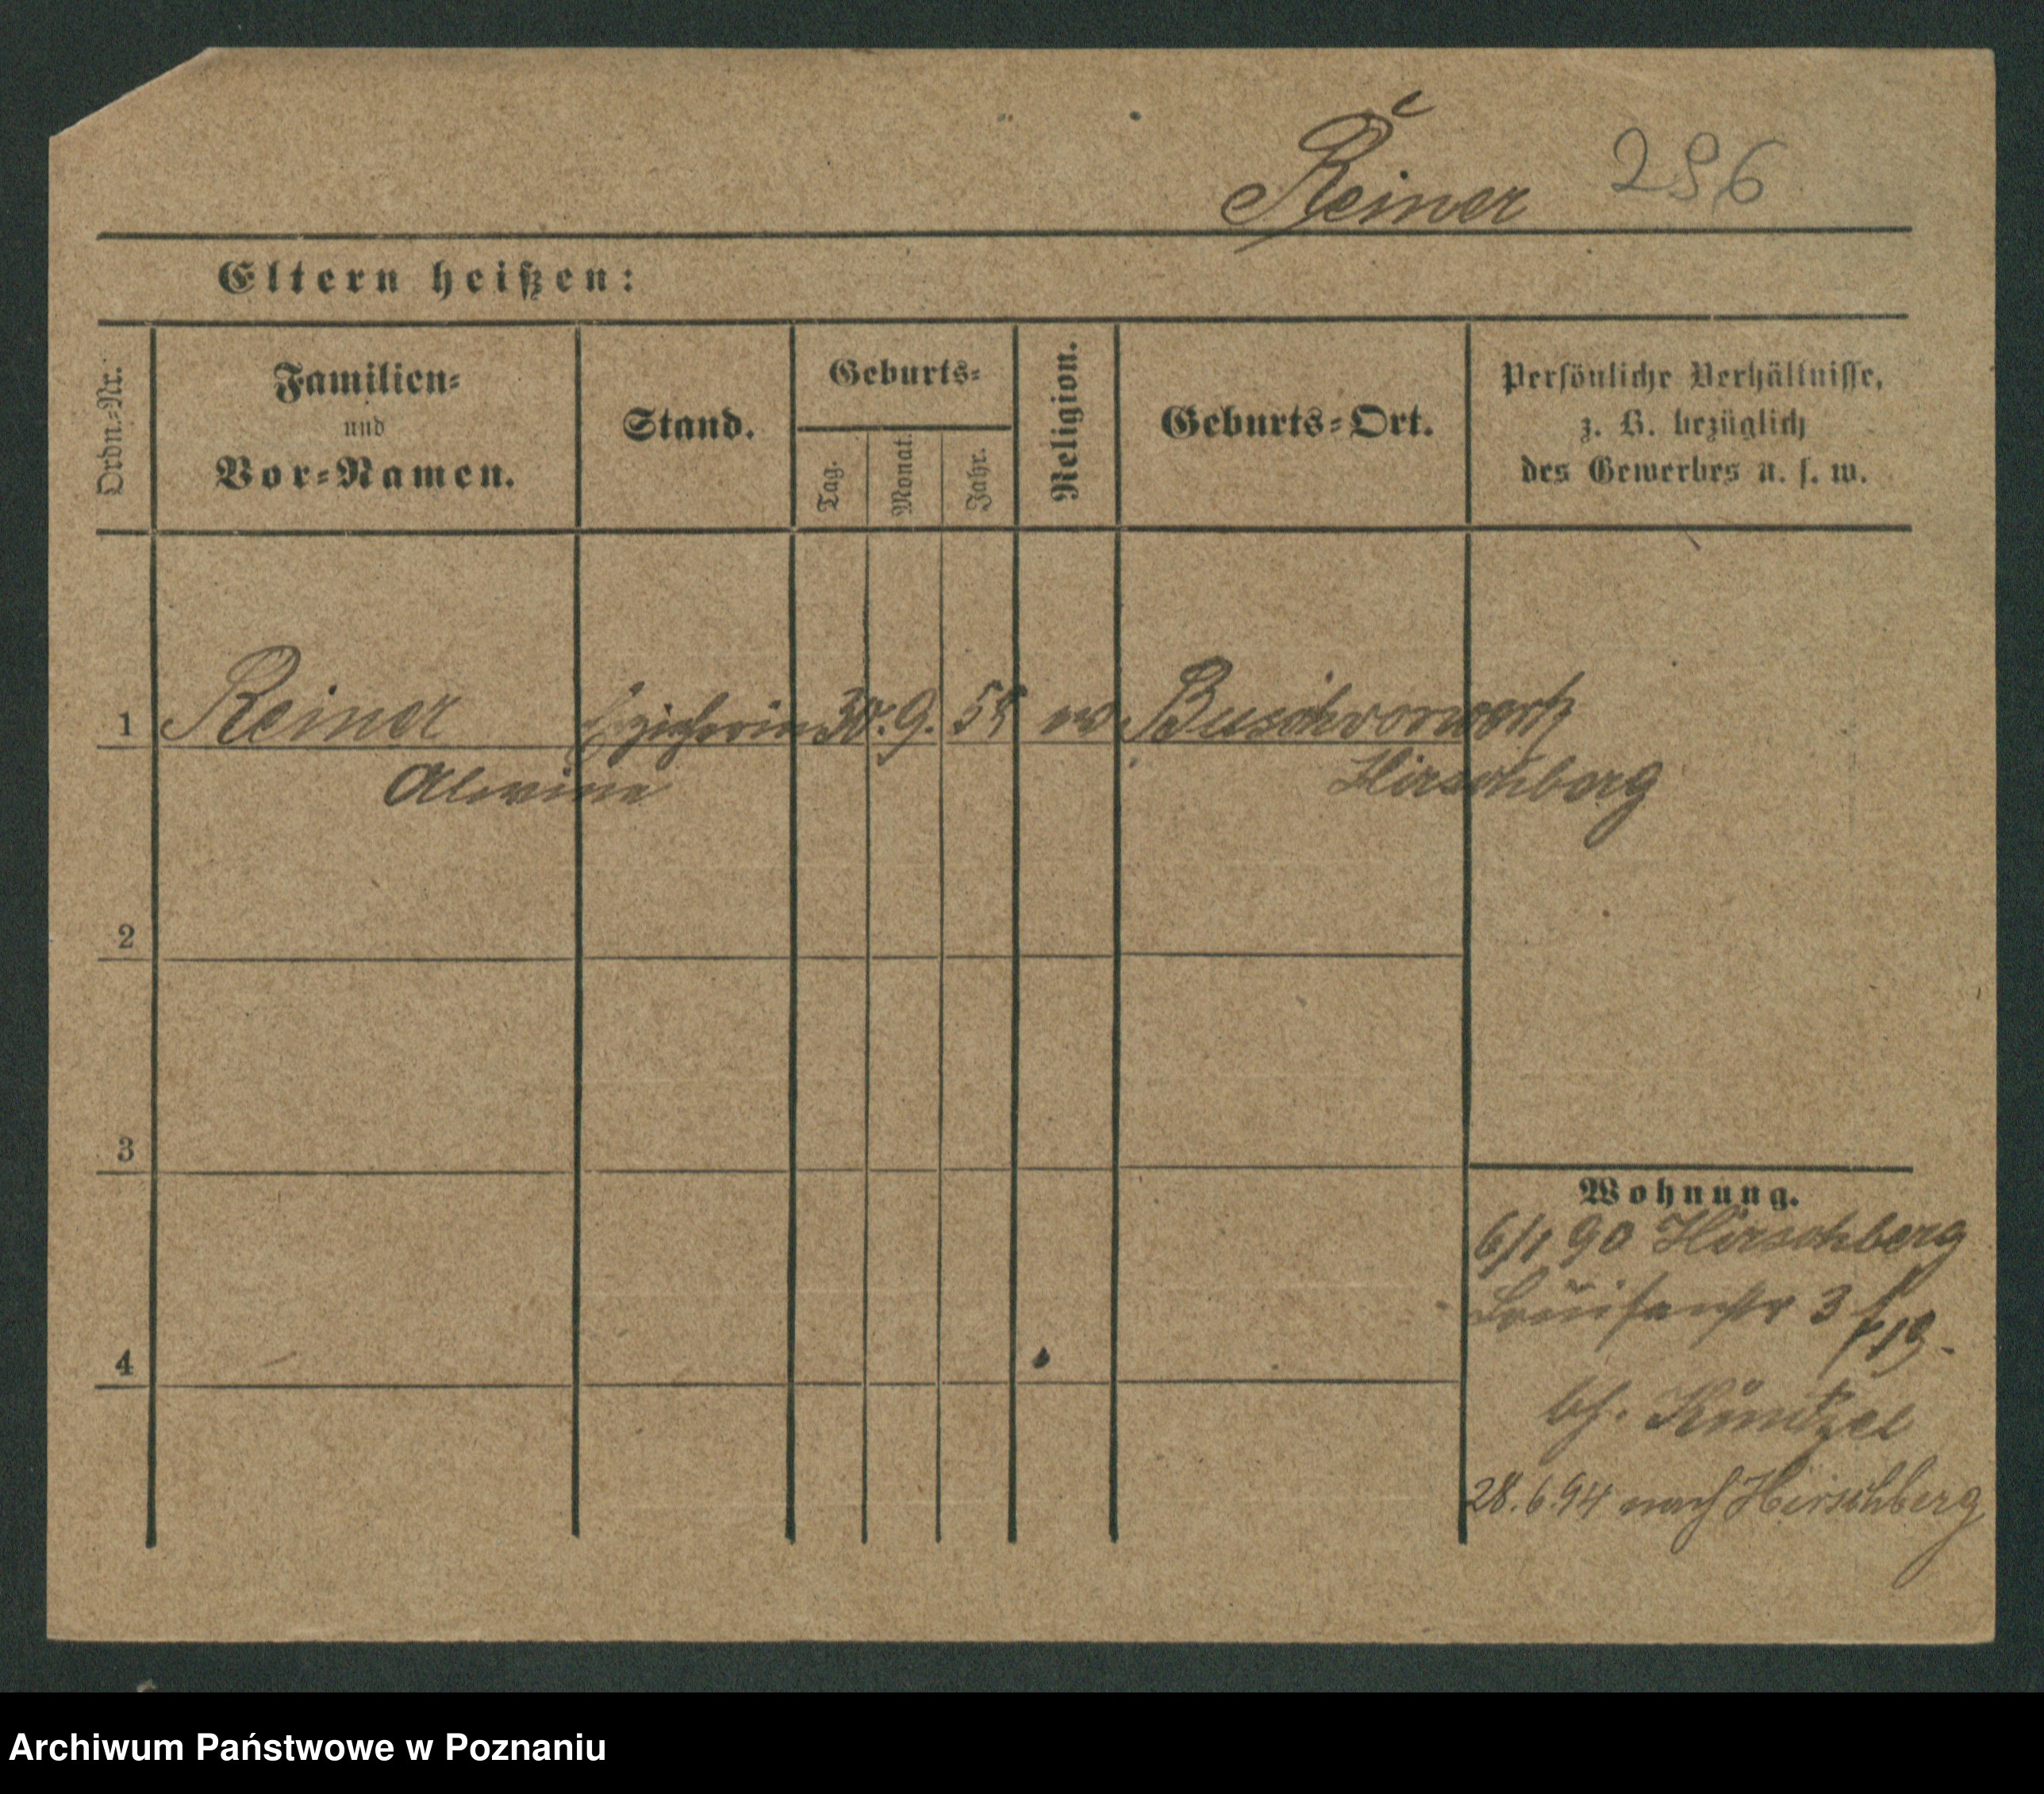 Reiner 286
Eltern heißen:
Ordn.=Nr.
Familien=
und
Vor=Namen.
Stand.
Geburts=
Tag.
Monat.
Jahr.
Religion.
Geburts=Ort.
Persönliche Verhältnisse,
z. B. bezüglich
des Gewerbes u. s. w.
1 Reiner Erzieherin 30. 9. ev. Buschvorwerk
Alwine Hirschberg
2
3
4
Wohnung.
6/1 90 Hirschberg
Louisenstr 3
19.
bh. Küntzel
28.6.94 nach Hirschberg
Archiwum Państwowe w Poznaniu